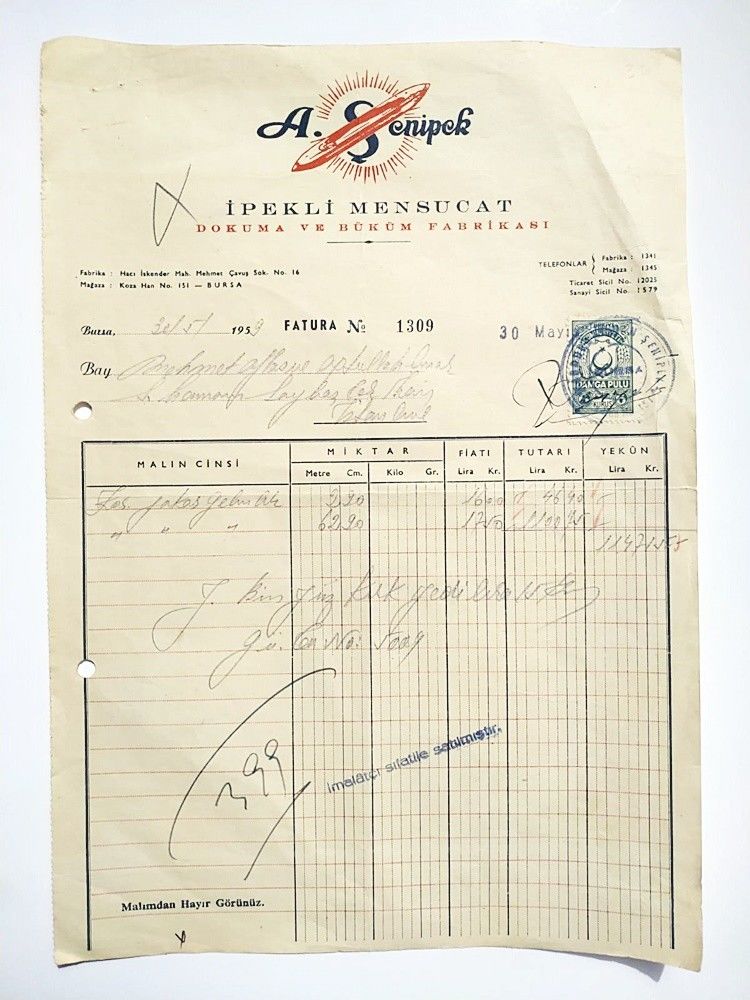 A. Şenipek
İPEKLİ MENSUCAT
DOKUMA VE BÜKÜM FABRİKASI
Fabrika : Hacı İskender Mah. Mehmet Çavuş Sok. No. 16
Mağaza : Koza Han No. 151 — BURSA
TELEFONLAR { Fabrika : 1341
Mağaza : 1345
Ticaret Sicil No. 12025
Sanayi Sicil No. 1579
Bursa, 1959 FATURA № 1309
30 Mayıs
DAMGA PULU
KURUŞ
Bay Mehmet
İstanbul
MALIN CİNSİ
MİKTAR
Metre Cm. Kilo Gr.
FİATI
Lira Kr.
TUTARI
Lira Kr.
YEKÛN
Lira Kr.
1600 46 40
" " " 62 90 1750 1100 75
1147 15
Y. Bin yüz kırk yedi lira 15 kr
No: 5009
399
İmalâtçı sıfatile satılmıştır.
Malımdan Hayır Görünüz.